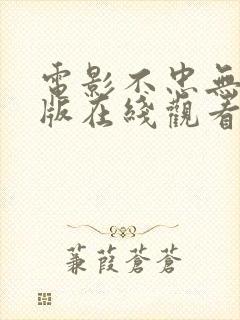 電影不忠無
版在綫觀看
蒹葭蒼蒼